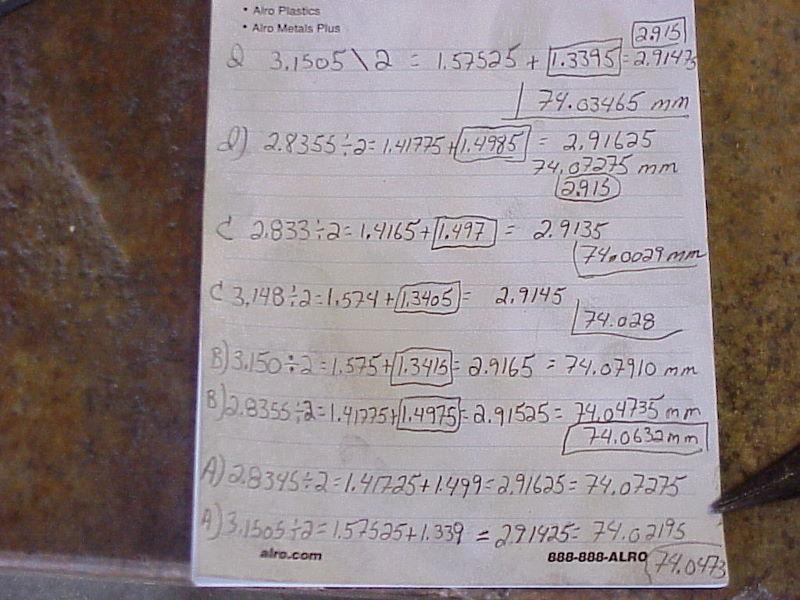 • Alro Plastics
• Alro Metals Plus
2.915
D 3.1505\2 = 1.57525 + 1.3395 = 2.91475
74.03465 mm
D) 2.8355÷2=1.41775+1.4985 = 2.91625
74.07275 mm
2.915
C 2.833÷2=1.4165+1.497 = 2.9135
74.0029 mm
C 3.148÷2=1.574+1.3405= 2.9145
74.028
B) 3.150÷2=1.575+1.3415=2.9165 = 74.07910 mm
B) 2.8355÷2=1.41775+1.4975=2.91525= 74.04735 mm
74.0632 mm
A) 2.8345÷2=1.41725+1.499=2.91625= 74.07275
A) 3.1505÷2=1.57525+1.339 = 2.91425= 74.02195
alro.com 888-888-ALRO
74.0473